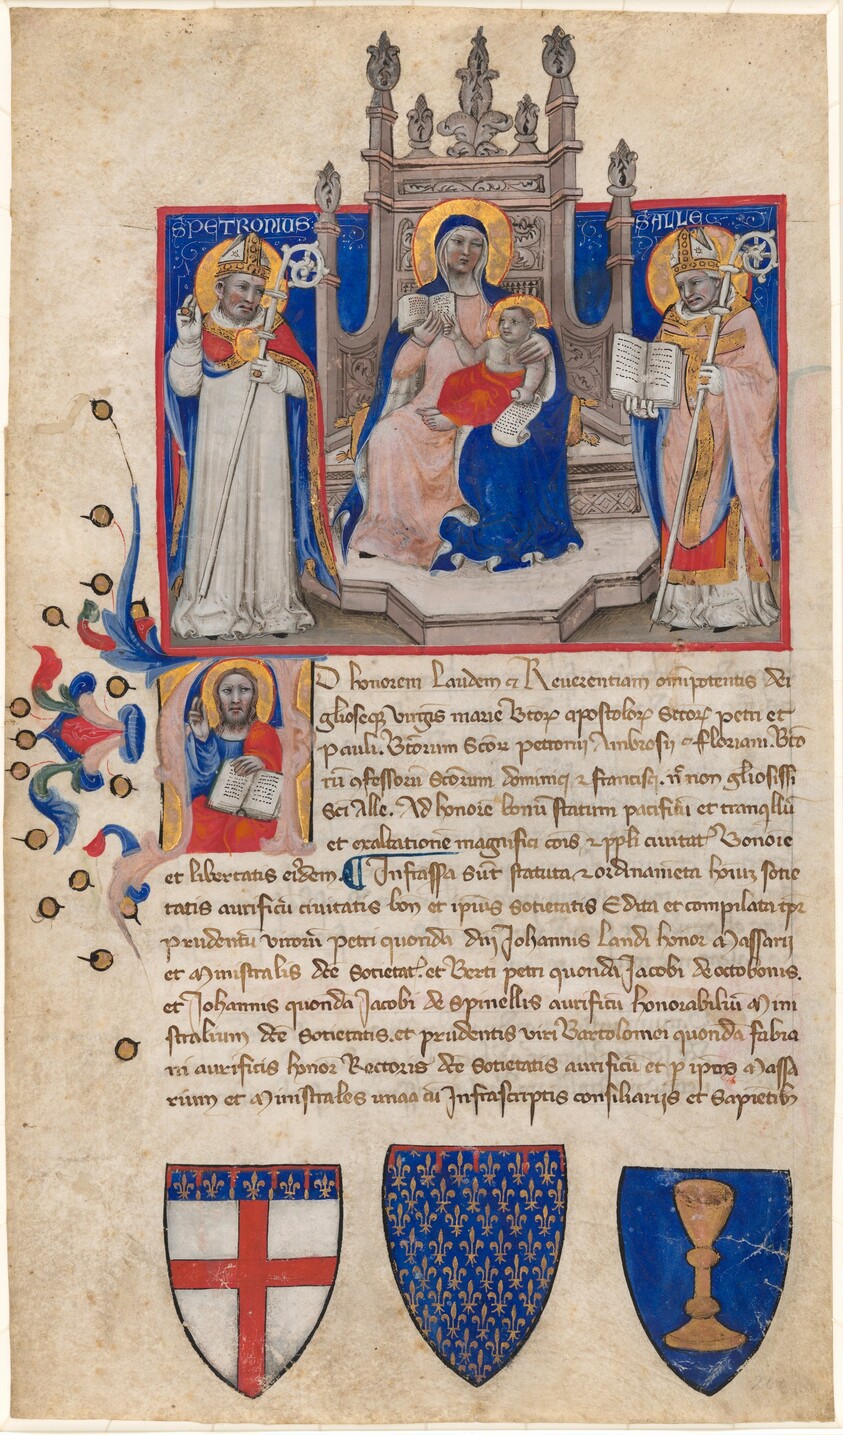 S PETRONIUS
S ALLE
AD honorem Laudem et Reuerentiam omnipotentis dei
glioseqz uirgis marie Btorz apostolorz Sctorz petri et
pauli. Btorum Scorz petronij Ambrosij et floriani. Bto
rū ꝯfessorū Scorum dominici et francisci. nō gliosissi
Sci Alle. Ad honorē bonū statum pacificū et tranqllū
et exaltationē magnifici cois et ppli ciuitat Bononie
et libertatis eiusdem. Infrassa sūt statuta et ordinamēta hōium sotie
tatis aurificū ciuitatis bon et ipius societatis Edita et compilata tpr
prudentū uirorū petri quondā dnj Johannis Landi honor Massarii
et Ministralis dcē Societat. et Berti petri quondā Jacobi de octobonis.
et Johannis quondā Jacobi de Spinellis aurificū honorabiliū Mini
stralium dcē Societatis. et prudentis uiri Bartolomei quondā fabia
ni aurificis honor Rectoris dcē Societatis aurificū et p ipsos Massa
rium et Ministrales unaa cū Infrascriptis consiliariis et Sapientibz